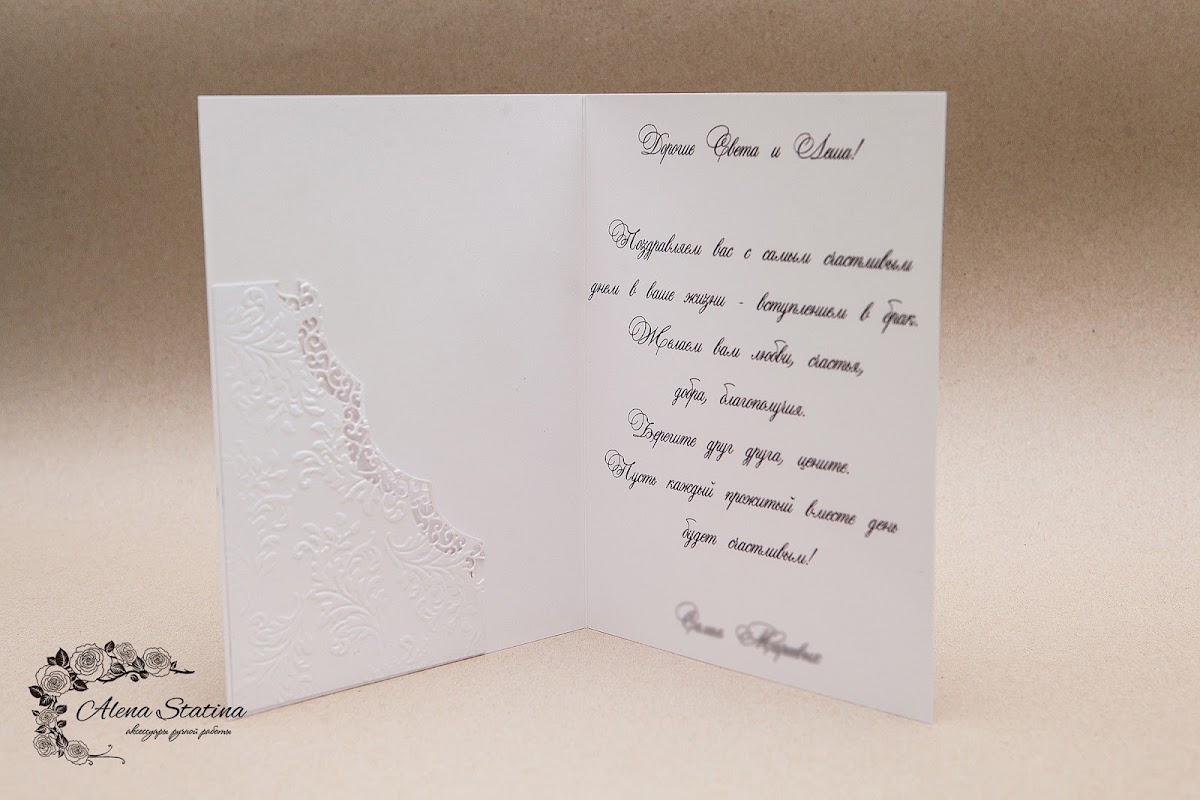 Дорогие Света и Леша!
Поздравляем вас с самым счастливым
днем в ваше жизни - вступлением в брак.
Желаем вам любви, счастья,
добра, благополучия.
Берегите друг друга, цените.
Пусть каждый прожитый вместе день
будет счастливым!
Alena Statina
аксессуары ручной работы